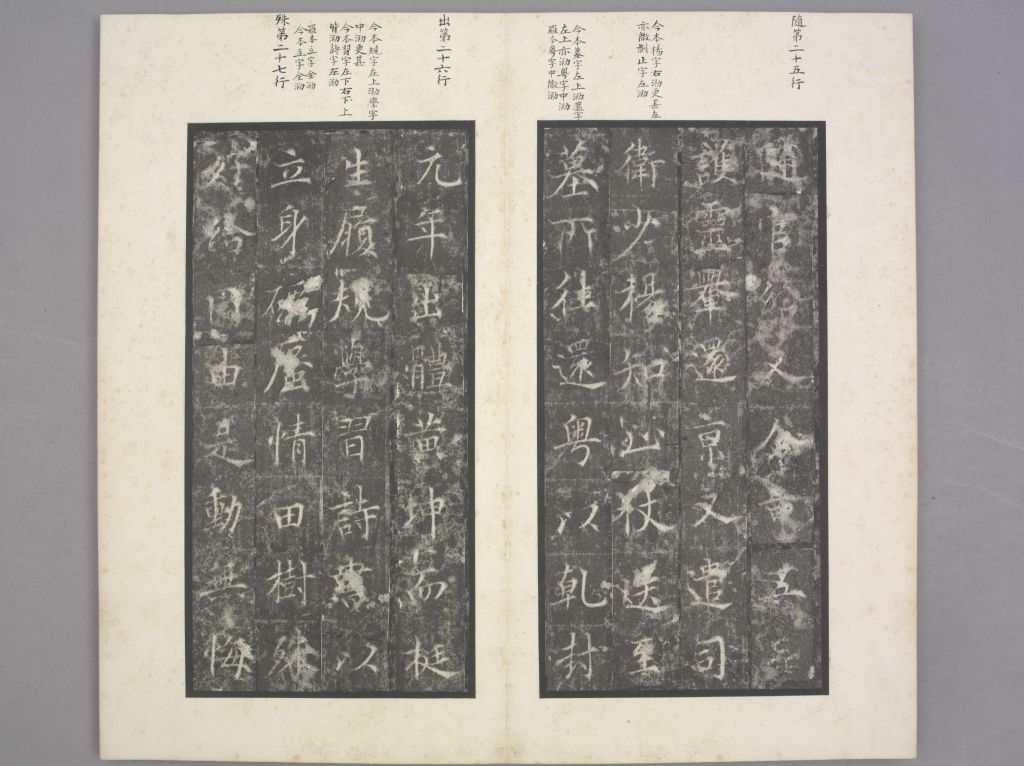 隨第二十五行
今本楊字右泐更甚左
亦微剝止字左泐
今本墓字左上泐還字
左上亦泐粤字中泐
羅本粤字中微泐
官又令五
護靈轝還京又遣司
衛少楊知止仗送至
墓所往還粤以乾封
出第二十六行
今本規字左上泐學字
中泐更甚
今本習字左下右下上
皆泐詩字左泐
殊第二十七行
羅本立字全泐
今本立字全泐
元年出體黄坤而挺
生履規學習詩書以
立身情田樹
好由是動無悔